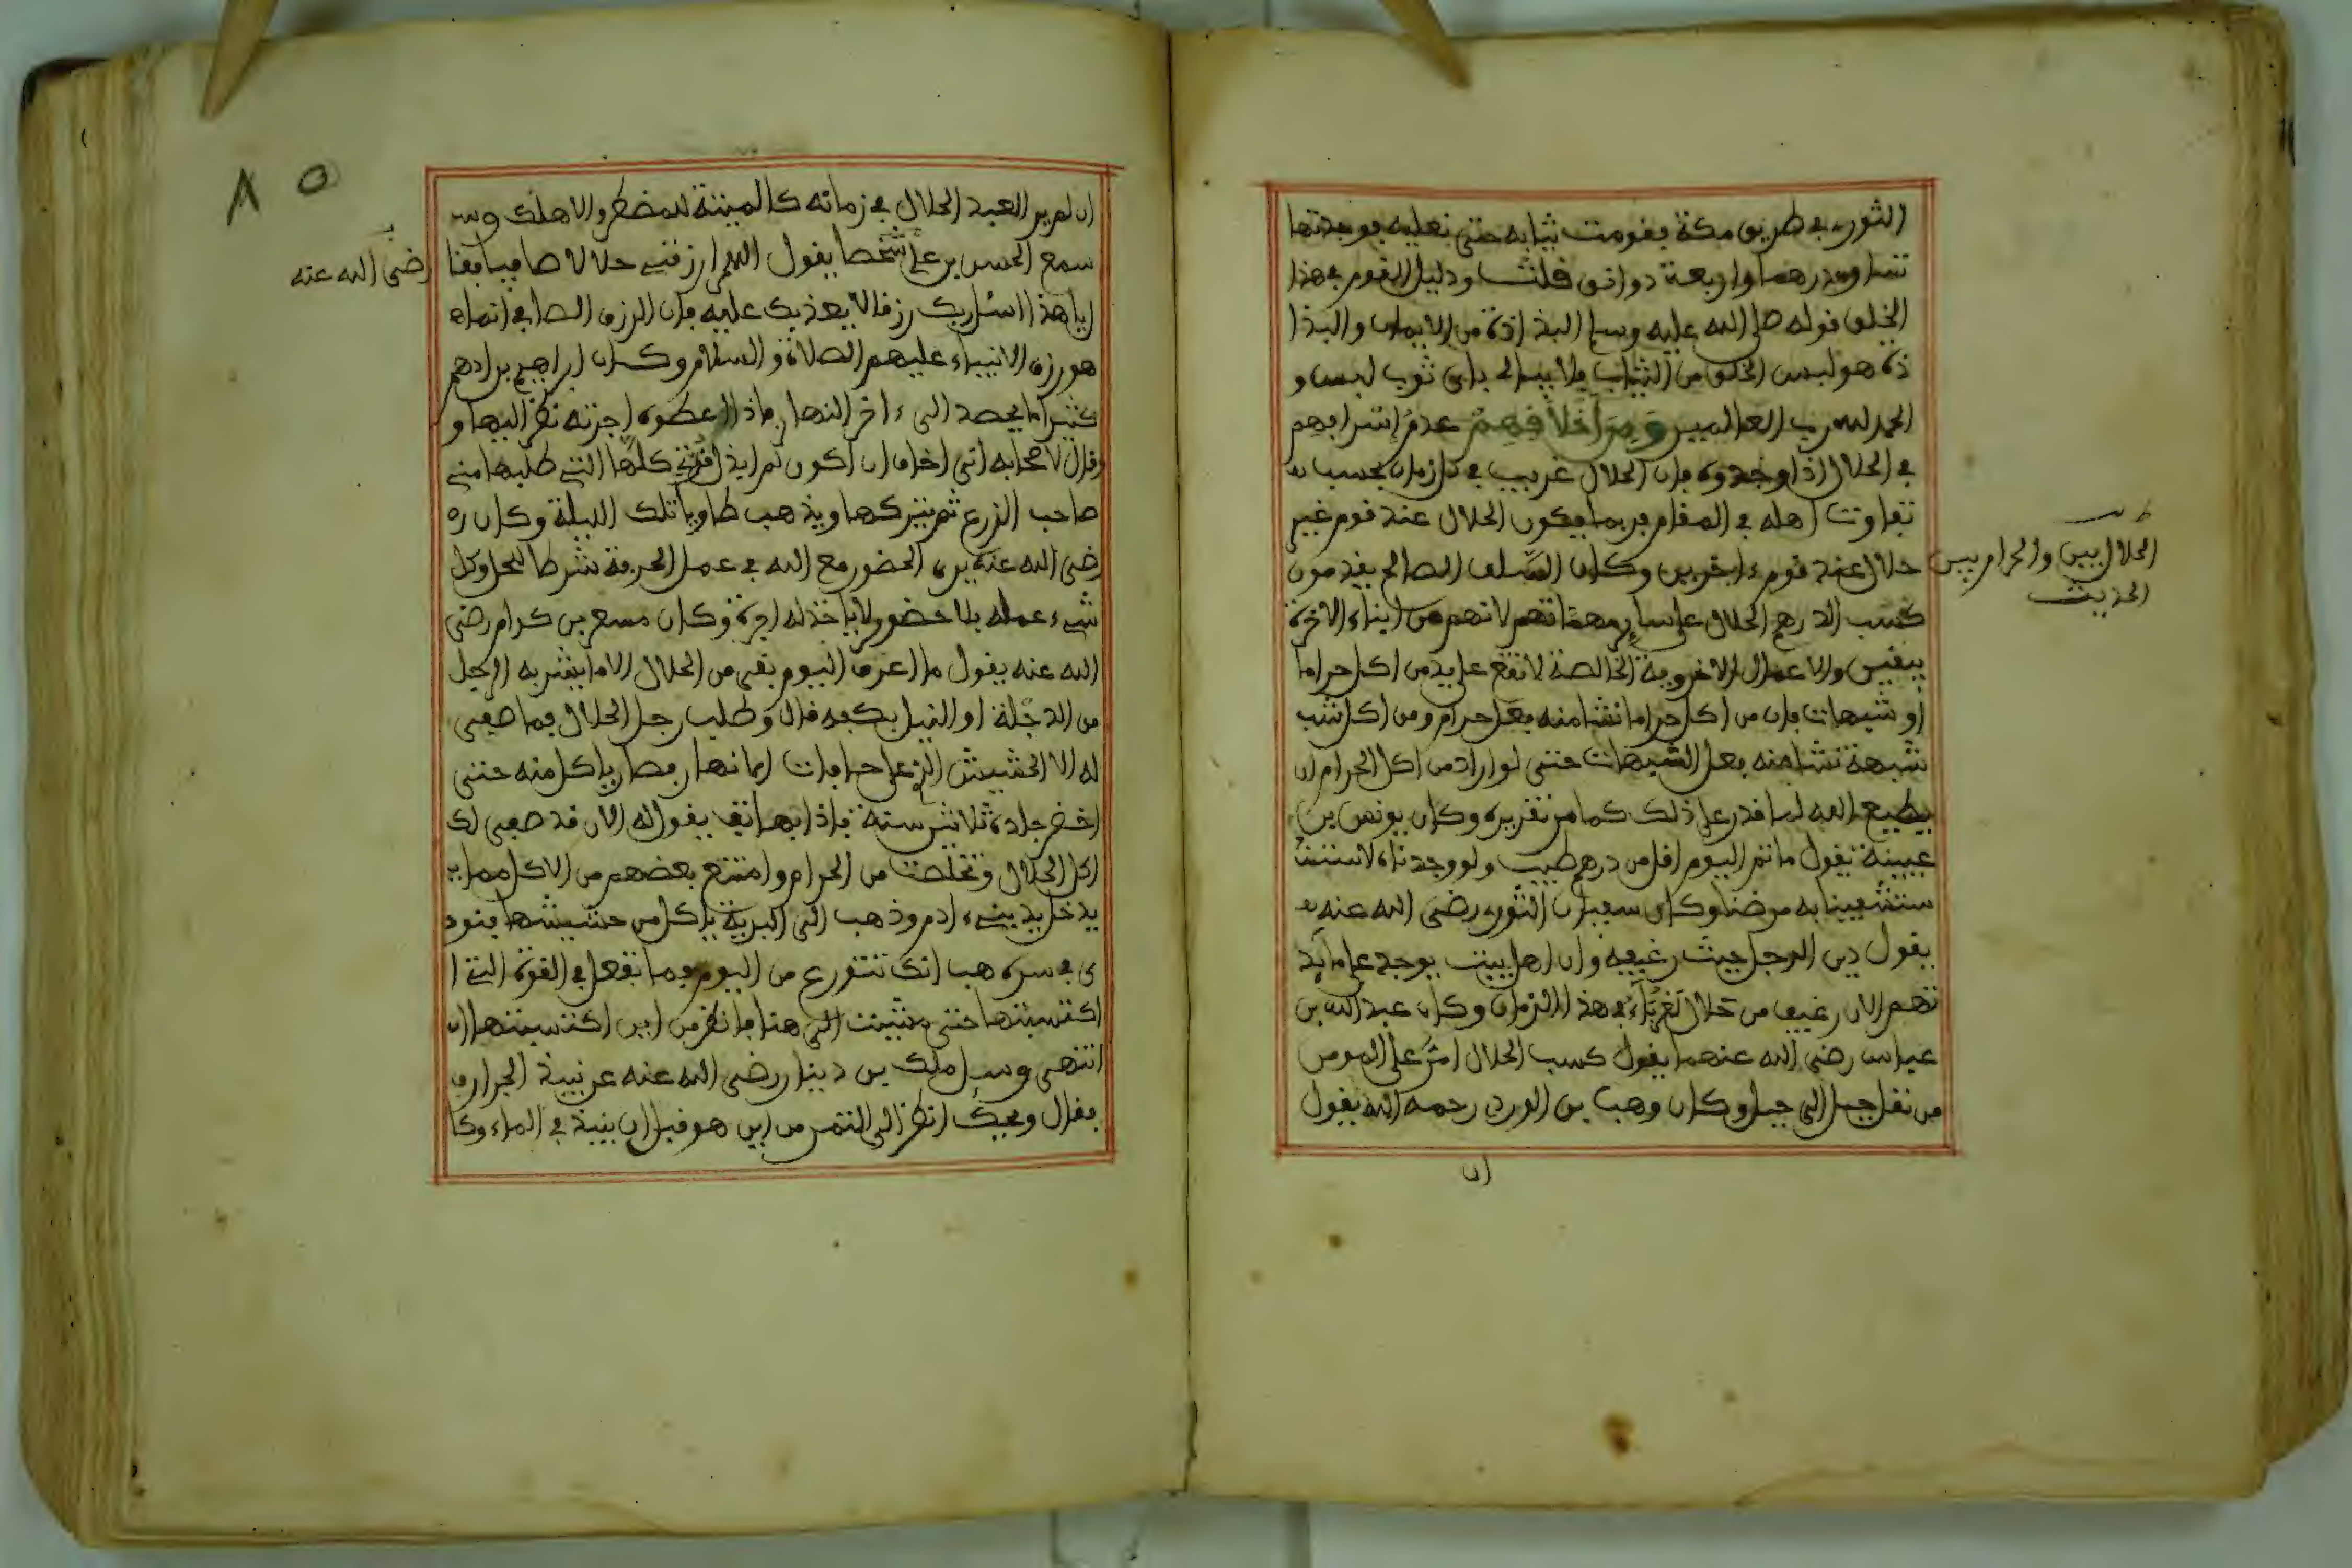 الثوري في طريق مكة فقومت ثيابه حتى نعليه فوجدتها
تساوي درهما واربعة دوانق قلت ودليل القوم في هذا
الخلق قوله صلى الله عليه وسلم البذاذة من الايمان والبذا
ذة هو لبس الخلق من الثياب فلا يبالي باي ثوب لبس و
الحمد لله رب العالمين ومن اخلاقهم عدم اسرافهم
في الحلال اذا وجدوه فان الحلال غريب في كل زمان بحسب
تفاوت اهله في المقام فربما يكون الحلال عند قوم غير
حلال عند قوم ءاخرين وكان السلف الصالح يقدمون
كسب الدرهم الحلال على سائر مهماتهم لانهم من ابناء الاخرة
بيقين والاعمال الاخروية الخالصة لا تقع على يد من اكل حراما
او شبهات فان من اكل حراما نشا منه فعل حرام ومن اكل شب
شبهة نشا منه فعل الشبهات حتى لو اراد من اكل الحرام ان
يطيع الله لما قدر على ذلك كما مر تقريره وكان يونس بن
عبينة يقول ما ثم اليوم اقل من درهم طيب ولو وجدناه لاستش
ستشفينا به مرضنا وكان سفيان الثوري رضى الله عنه يـ
يقول دين الرجل حيث رغيفه وان اهل بيت يوجد على مايد
تهم الان رغيف من حلال لغرباء في هذا الزمان وكان عبد الله بن
عباس رضى الله عنهما يقول كسب الحلال اشر على المومن
من نقل جبل الى جبل وكان وهب بن الورد رحمه الله يقول
ان
طـ
الحلال بين والحرام بين
الحديث
٨٥
ان لم ير العبد الحلال في زمانه كالميتة للمضطر والا هلك و
سمع الحسن بن علي شخصا يقول اللهم ارزقني حلالا صافيا فقا
رضى الله عنه
ل يا هذا اسئل ربك رزقا لا يعذبك عليه فان الرزق الصافي انما
هو رزق الانبياء عليهم الصلاة والسلام وكان ابراهيم بن ادهم
كثيرا ما يحصد الى ءاخر النهار فاذا اعطوه اجرته نظر اليها و
وقال لاصحابه انى اخاف ان اكون لم ابذل قوتي كلها التي طلبها مني
صاحب الزرع ثم يتركها ويذهب طاويا تلك الليلة وكان ر
رضى الله عنه يرى الحضور مع الله في عمل الحرفة شرطا للحل وكل
شيء عمله بلا حضور لا ياخذ له اجرة وكان مسعر بن كرام رضى
الله عنه يقول ما اعرف اليوم بقى من الحلال الا ما يشربه الرجل
من الدجلة او النيل بكفه قال وطلب رجل الحلال فما صفى
له الا الحشيش الذي على حافات الانهار فصار ياكل منه حتى
اخضر جلده ثلاثين سنة فاذا بهاتف يقول له الان قد صفى لك
اكل الحلال وتخلصت من الحرام وامتنع بعضهم من الاكل مما يـ
يدخل يد بني ءادم وذهب الى البرية ياكل من حشيشها فنود
ى في سره هب انك تتورع من اليوم فما تفعل في القوة التي ا
اكتسبتها حتى مشيت الى هنا فانظر من اين اكتسبتها
انتهى وسئل ملك بن دينار رضى الله عنه عن نبيذ الجرار
فقال ويحك انظر الى التمر من اين هو قبل ان ينبذ في الماء وكا